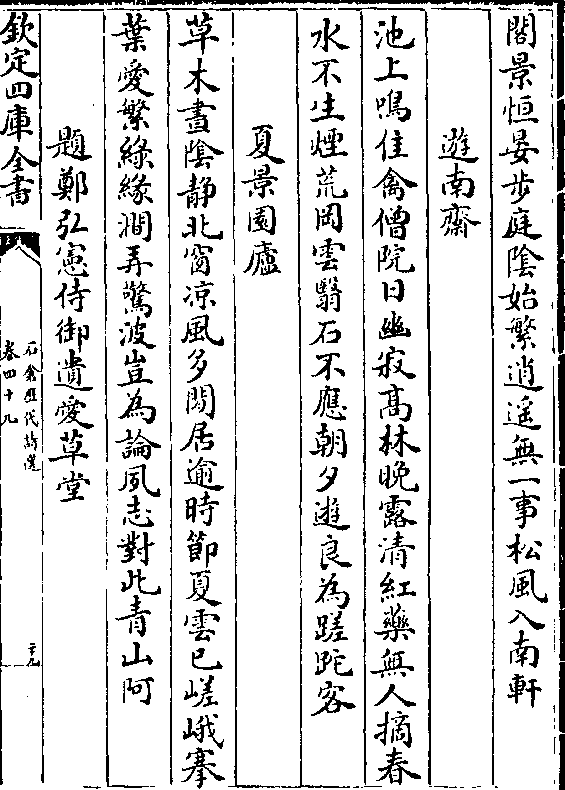 閤景恒晏步庭陰始繁逍遥無一事松風入南軒
遊南齋
池上鳴佳禽僧院日幽寂髙林晚露清紅藥無人摘春
水不生煙荒岡雲翳石不應朝夕遊良為蹉跎客
夏景園廬
草木晝陰静北窗凉風多閑居逾時節夏雲已嵯峨搴
葉愛繁緑緣澗弄驚波豈為論夙志對此青山阿
題鄭弘憲侍御遺愛草堂
欽定四庫全書
石倉歴代詩選
卷四十九